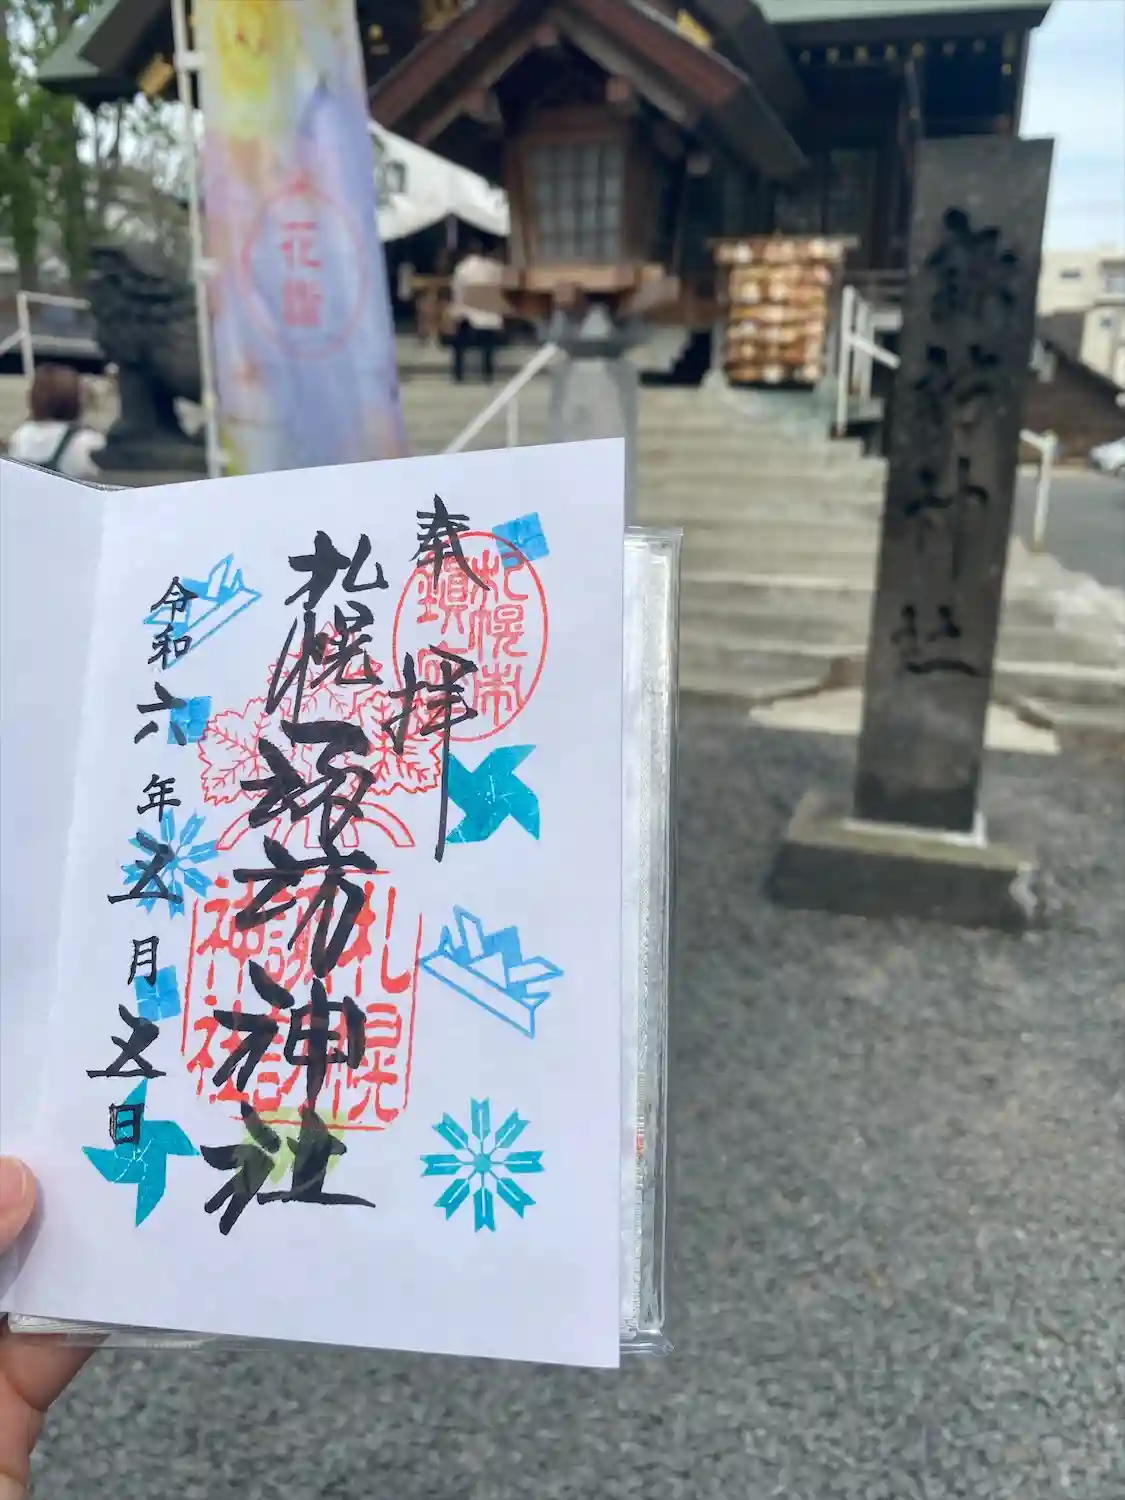 奉拝
札幌諏訪神社
令和六年五月五日
札幌市
鎮座
札幌
諏訪
神社
花詣
諏訪神社